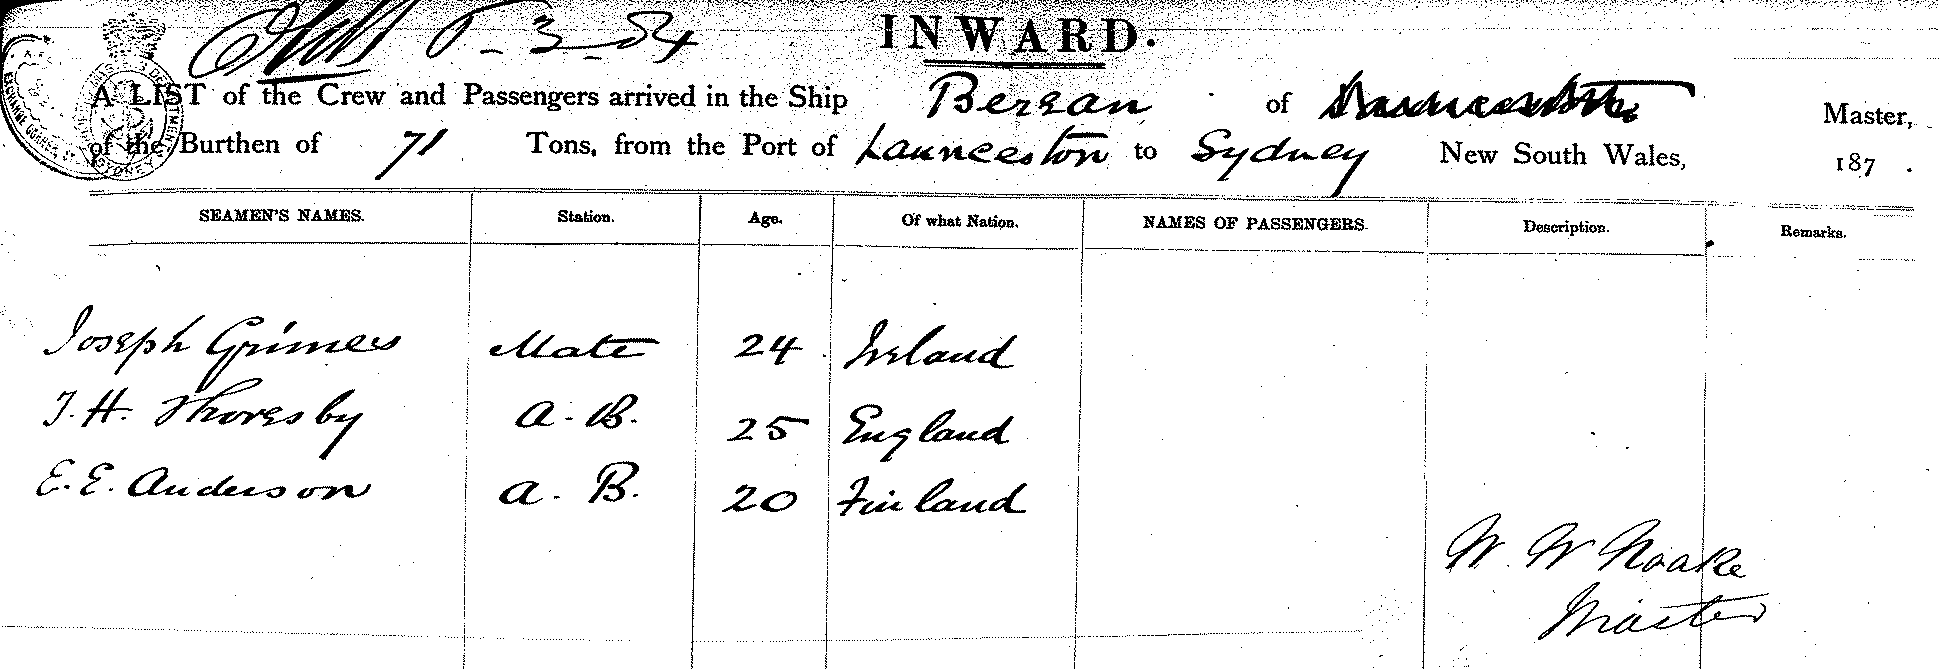 5-3-84
INWARD.
A LIST of the Crew and Passengers arrived in the Ship Bersan of Master,
of the Burthen of 71 Tons, from the Port of Launceston to Sydney New South Wales, 187 .
SEAMEN'S NAMES. Station. Age. Of what Nation. NAMES OF PASSENGERS. Description. Remarks.
Joseph Grimes Mate 24 Ireland
T. H. Thoresby A. B. 25 England
E. E. Anderson A. B. 20 Finland
W. W. Noake
Master